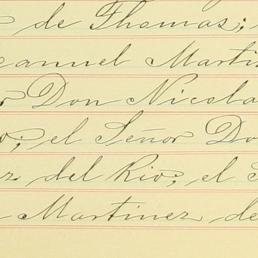 de Thomas;
anuel Martin
Don Nicola
o; el Señor Do
z del Rio; el S
Martinez de